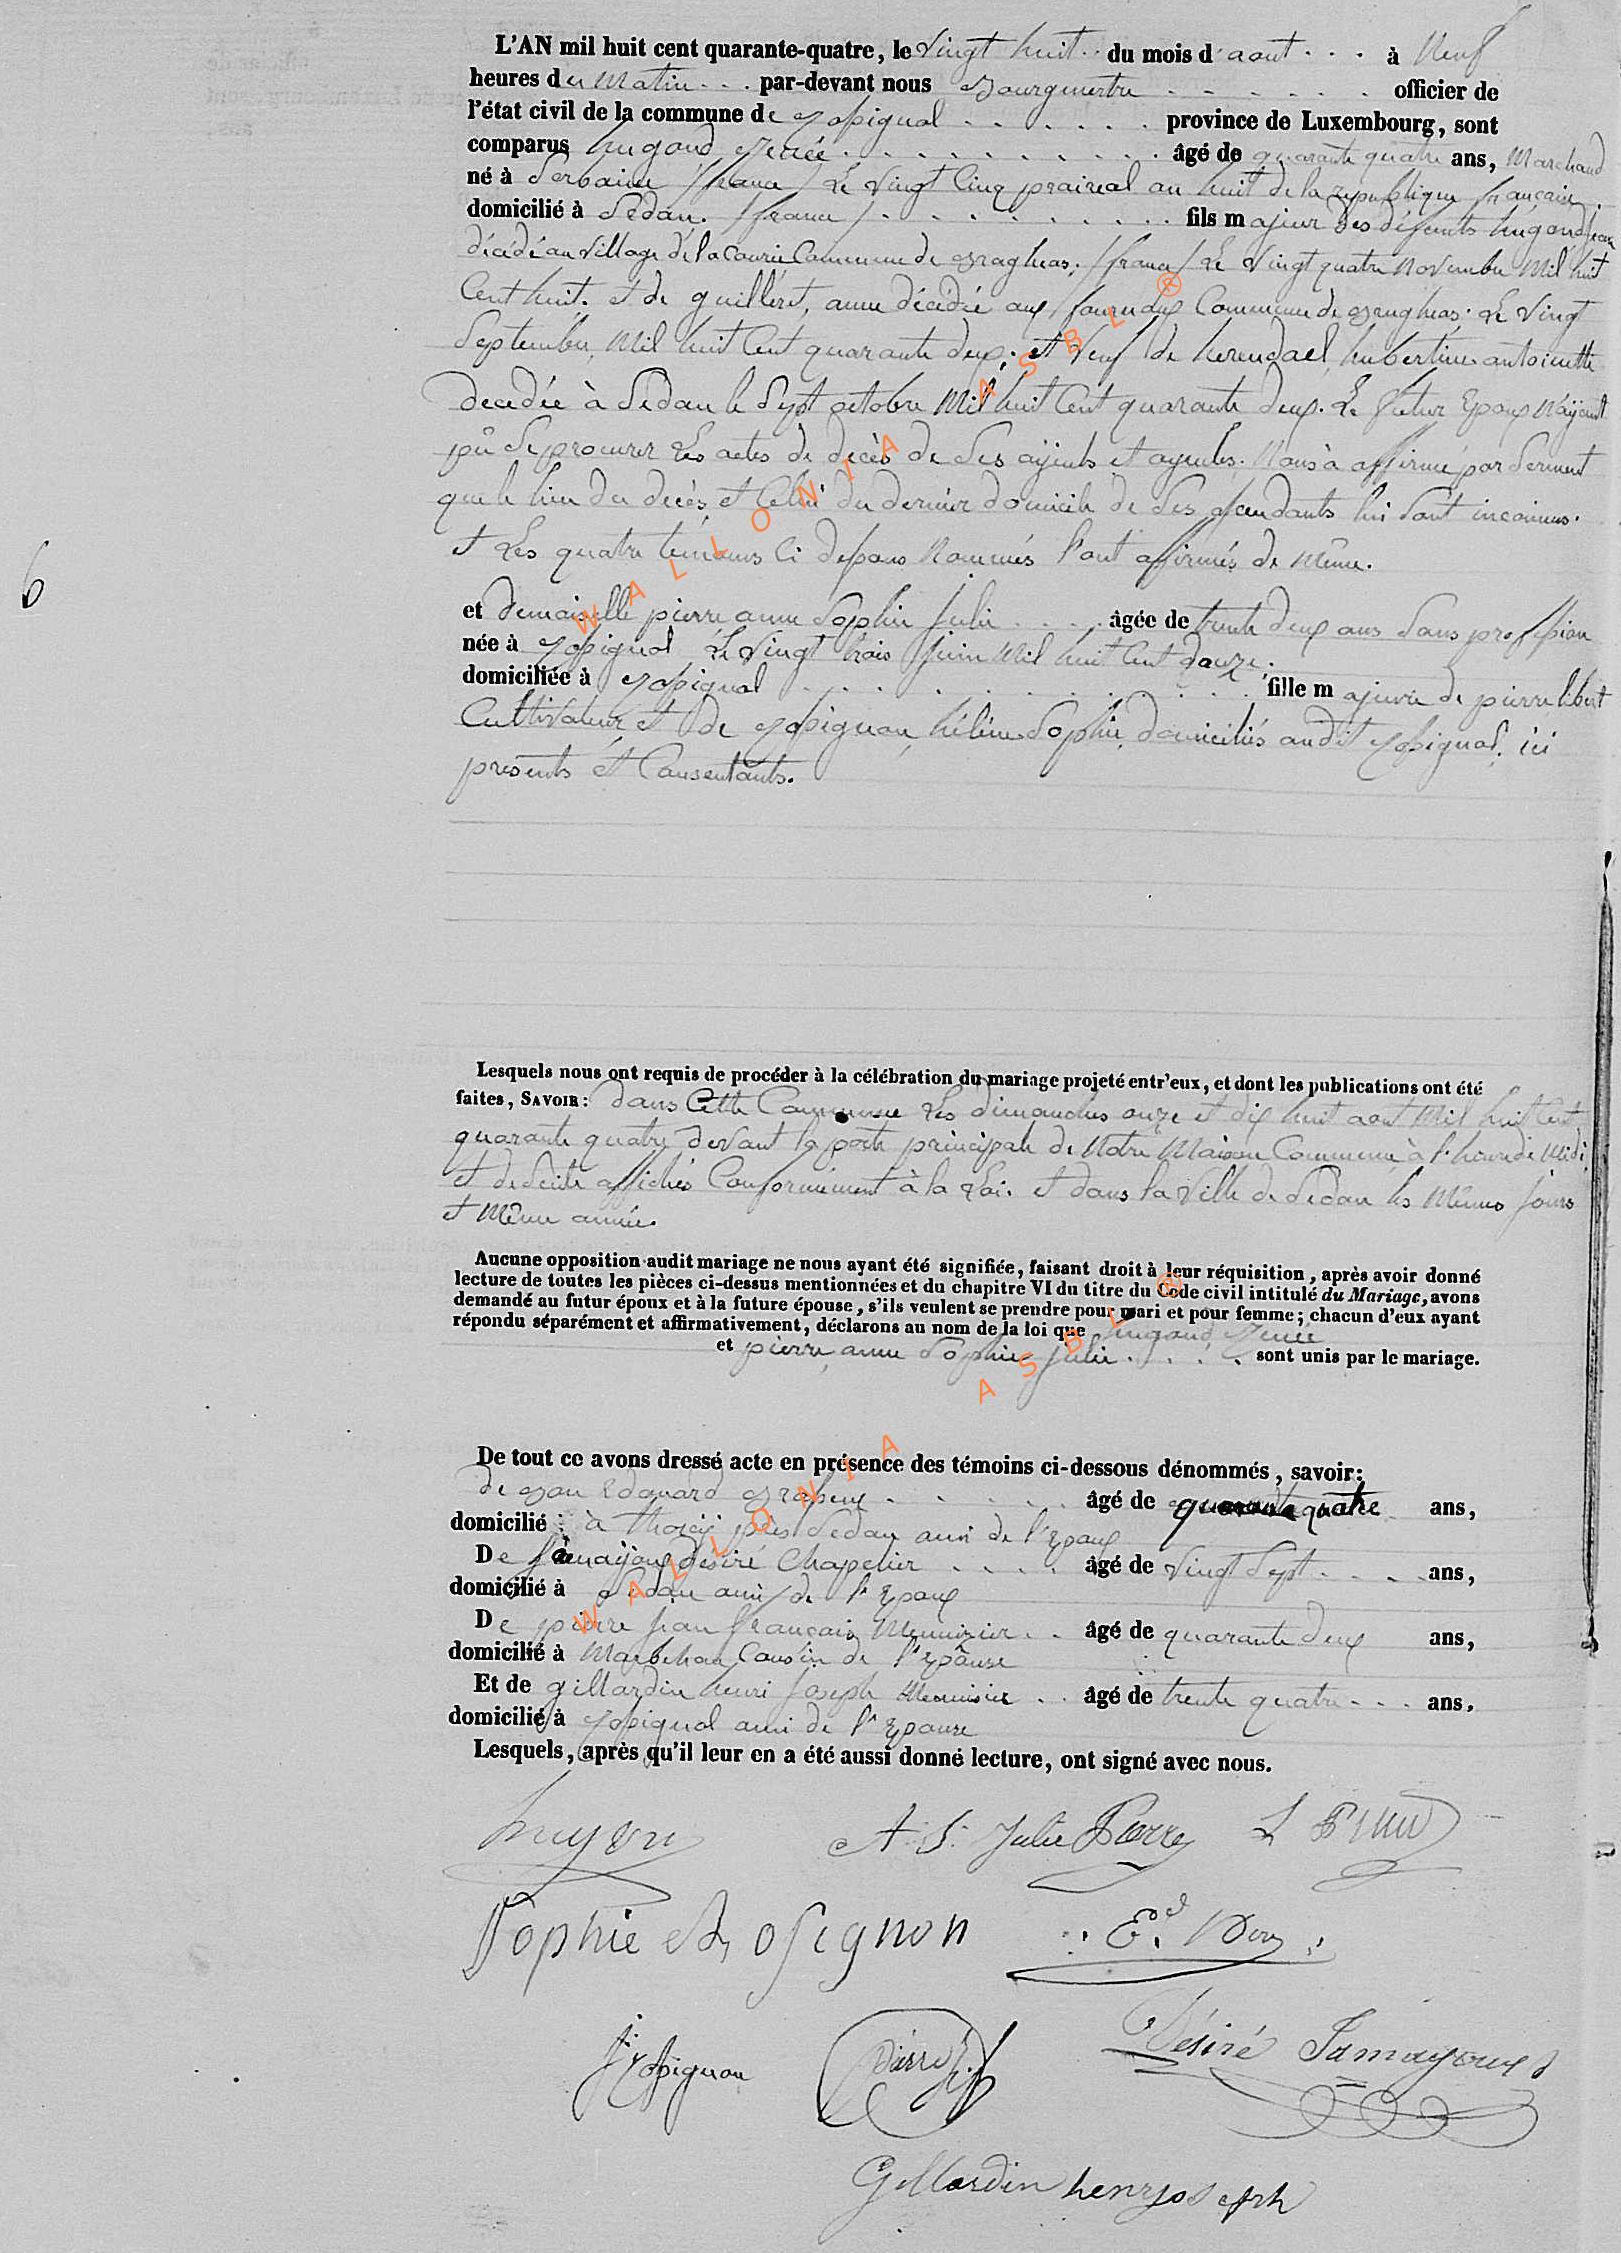 L'AN mil huit cent quarante-quatre, le vingt huit du mois d'aout à Neuf
heures du Matin par-devant nous Bourgmestre officier de
l'état civil de la commune de Rossignol province de Luxembourg, sont
comparus hugond âgé de quarante quatre ans, Marchand
né à /france/ Le vingt Cinq praireal an huit de la republique française
domicilié à Sedan. /france/ fils majeur des défunts hugond jean
décédé au village de la Commune de /france/ Le Vingt quatre Novembre Mil huit
Cent huit. et de guilleret, anne décédée aux Commune de Le Vingt
Septembre, Mil huit Cent quarante deux. et Veuf de herendael, hubertine antoinette
decedée à Sedan le Sept octobre Mil huit Cent quarante deux. Le futur Epoux N'ayant
pû Se procurer Les actes de décès de Ses ayeuls et ayeules. Nous a affirmé par Serment
que le lieu du decès et Celui du dernier domicile de Ses ascendants lui Sont inconnus.
et Les quatre temoins Ci dessous Nommés l'ont affirmés de Même.
6
et demoiselle pierre anne Sophie julie âgée de trente deux ans Sans profession
née à Rossignol Le Vingt trois juin Mil huit Cent douze.
domiciliée à Rossignol fille majeure de pierre libert
Cultivateur et de Rossignon, hélène Sophie, domiciliés audit Rossignol, ici
presents et Consentants.
Lesquels nous ont requis de procéder à la célébration du mariage projeté entr'eux, et dont les publications ont été
faites, SAVOIR: dans Cette Commune Les dimanches onze et dix huit aout Mil huit Cent
quarante quatre devant la porte principale de Notre Maison Commune à l'heure de Midi
et de Suite affichés Conformément à la Loi. et dans la Ville de Sedan les Mêmes jours
et Même année.
Aucune opposition audit mariage ne nous ayant été signifiée, faisant droit à leur réquisition, après avoir donné
lecture de toutes les pièces ci-dessus mentionnées et du chapitre VI du titre du Code civil intitulé du Mariage, avons
demandé au futur époux et à la future épouse, s'ils veulent se prendre pour mari et pour femme; chacun d'eux ayant
répondu séparément et affirmativement, déclarons au nom de la loi que hugond
et pierre, anne Sophie julie sont unis par le mariage.
De tout ce avons dressé acte en présence des témoins ci-dessous dénommés, savoir:
de Edouard âgé de quarante quatre ans,
domicilié à près Sedan ami de l'Epoux
De désiré Chapelier âgé de vingt Sept ans,
domicilié à Sedan ami de l'Epoux
De pierre jean françois Menuisier âgé de quarante deux ans,
domicilié à Marbehan Cousin de l'Epouse
Et de gillardin henri joseph Menuisier âgé de trente quatre ans,
domicilié à Rossignol ami de l'Epouse
Lesquels, après qu'il leur en a été aussi donné lecture, ont signé avec nous.
A. S. Julie Pierre
Sophie Rosignon
J. Rossignon Pierre Désiré Jamayoux
Gillardin henr joseph
WALLONIA ASBL ®
WALLONIA ASBL ®